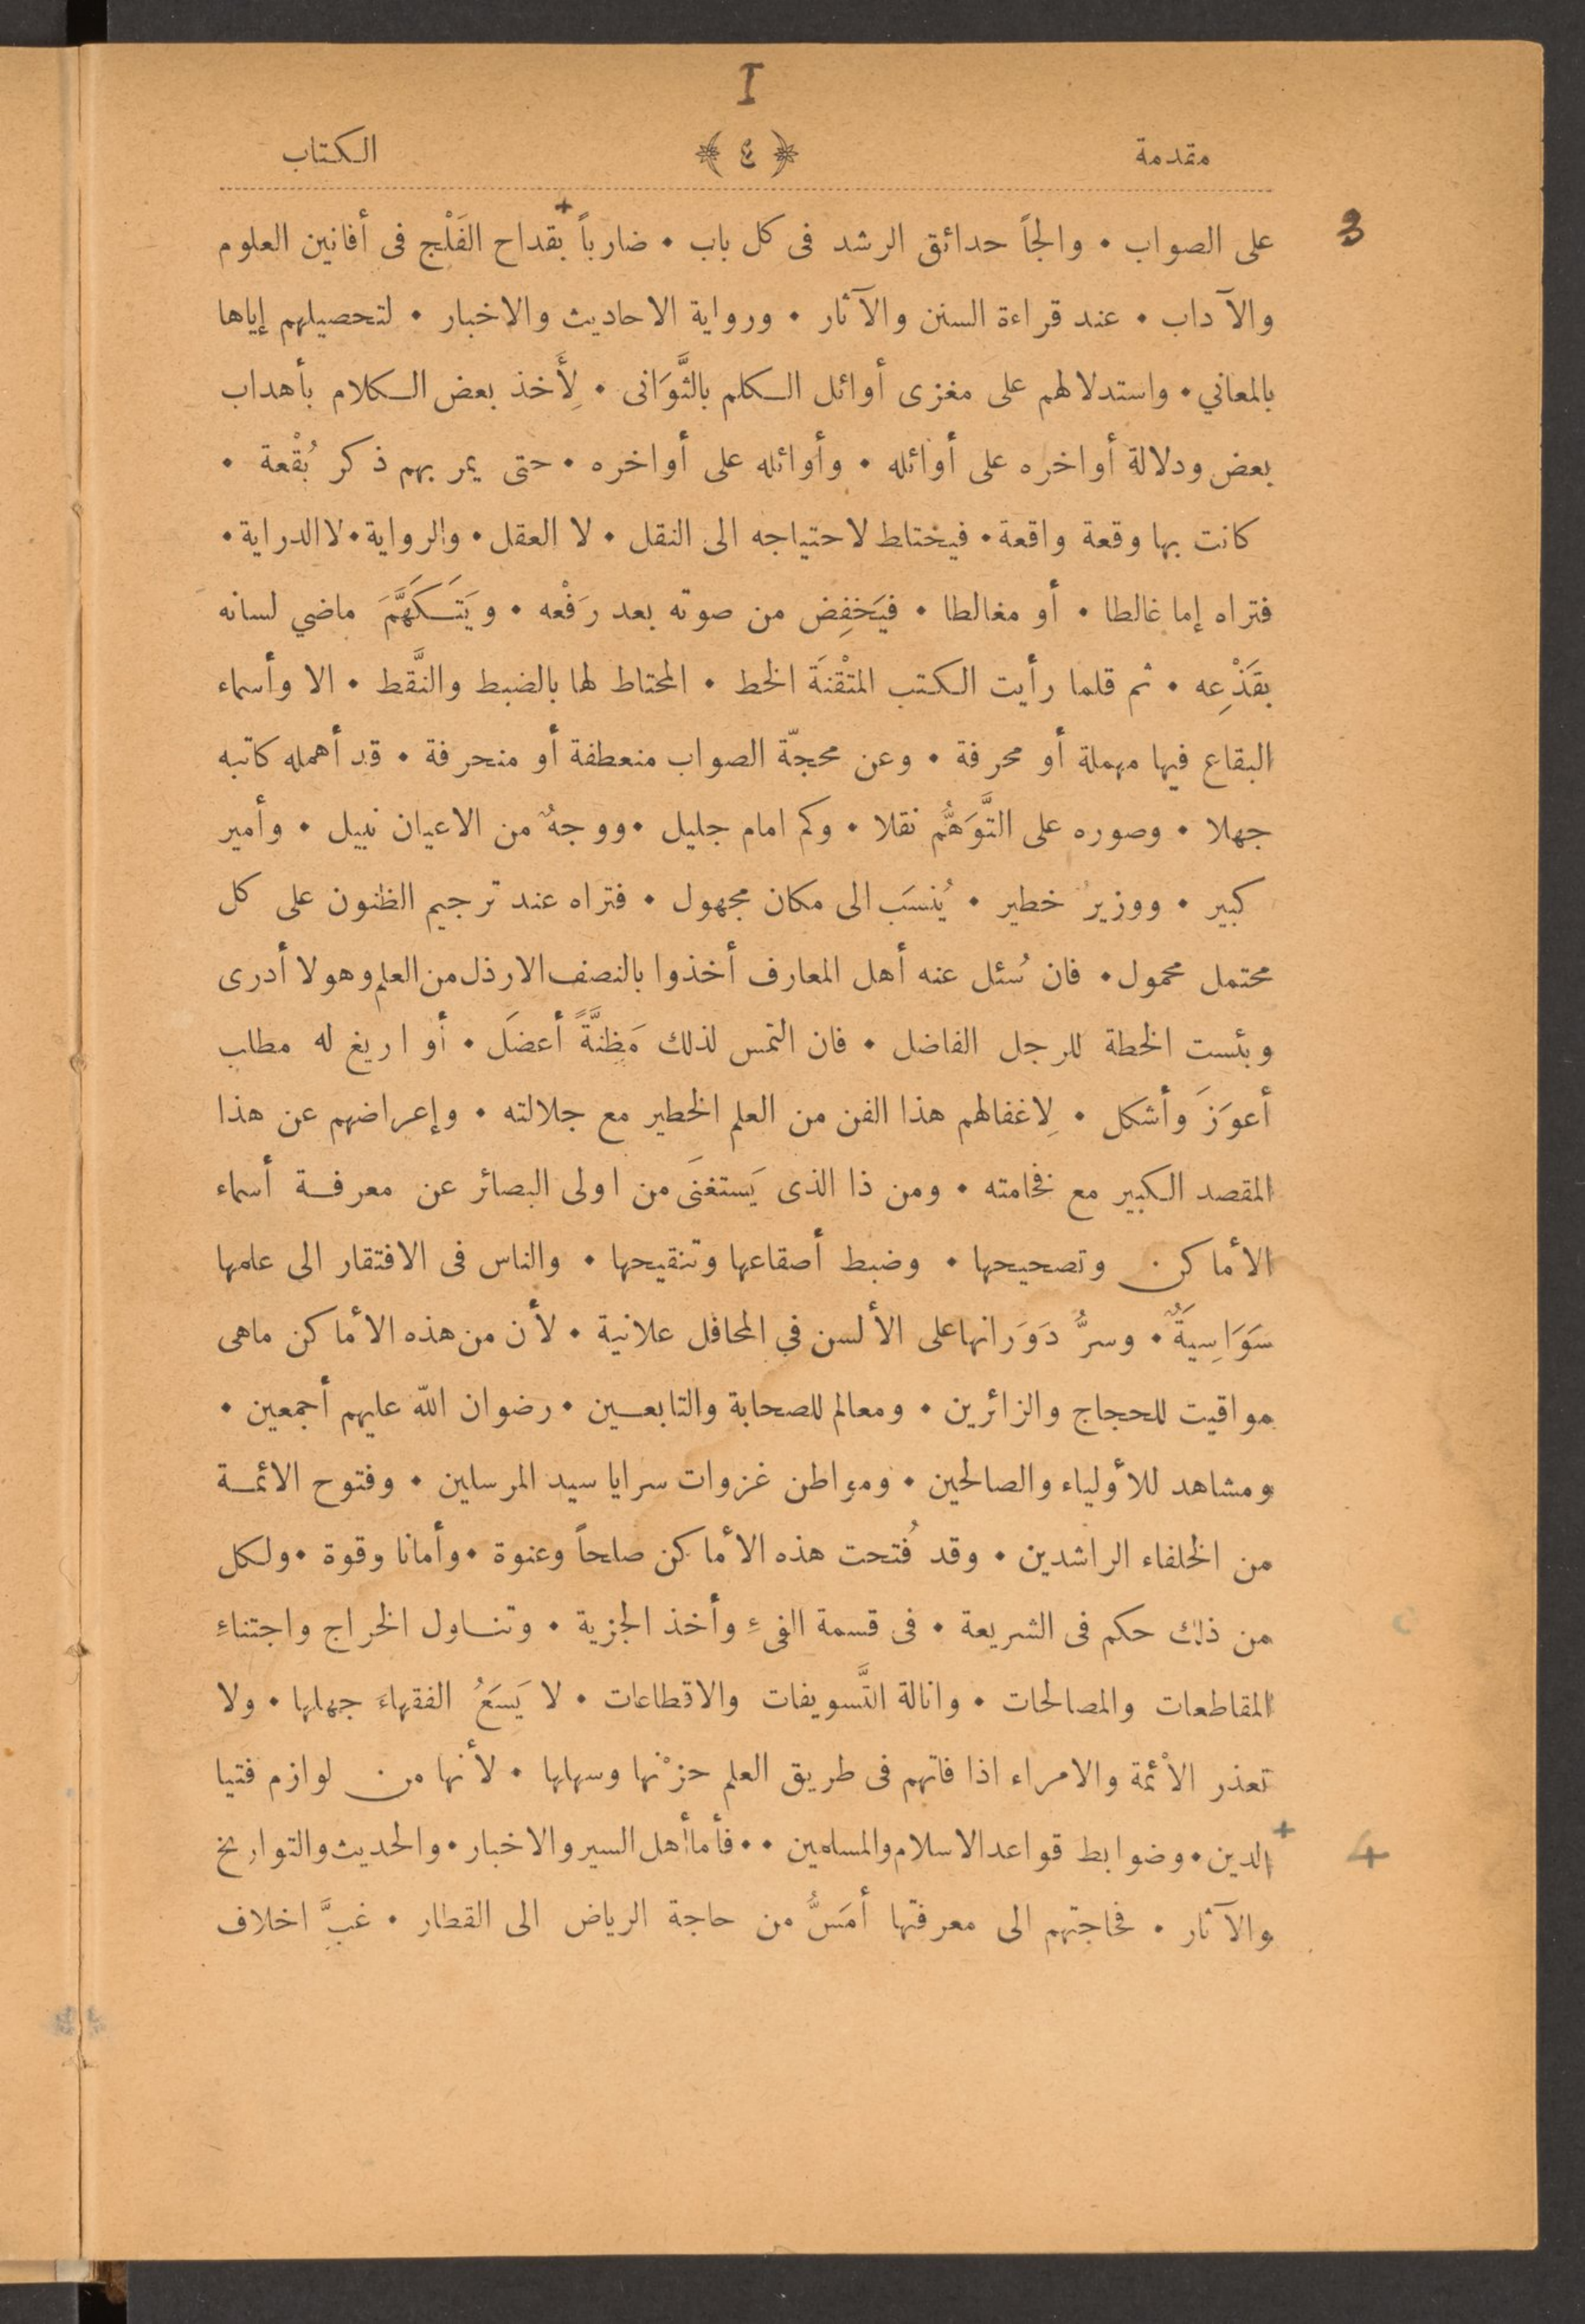 I
مقدمة ﴿٤﴾ الكتاب
3
على الصواب • والجاً حدائق الرشد فى كل باب • ضارباً بقداح الفَلْج فى أفانين العلوم
والآداب • عند قراءة السنن والآثار • ورواية الاحاديث والاخبار • لتحصيلهم إياها
بالمعاني • واستدلالهم على مغزى أوائل الكلم بالثَّوَانى • لِأَخذ بعض الكلام بأهداب
بعض ودلالة أواخره على أوائله • وأوائله على أواخره • حتى يمر بهم ذكر بُقْعة •
كانت بها وقعة واقعة • فيختاط لاحتياجه الى النقل • لا العقل • والرواية • لا الدراية •
فتراه إما غالطا • أو مغالطا • فيَخفِض من صوته بعد رَفْعه • ويَتَكَهَّمَ ماضي لسانه
بقَذْعِه • ثم قلما رأيت الكتب المتْقنَة الخط • المحتاط لها بالضبط والنَّقط • الا وأسماء
البقاع فيها مهملة أو محرفة • وعن محجّة الصواب منعطفة أو منحرفة • قد أهمله كاتبه
جهلا • وصوره على التَّوَهُّم نقلا • وكم امام جليل • ووجهٌ من الاعيان نبيل • وأمير
كبير • ووزيرٌ خطير • يُنسَب الى مكان مجهول • فتراه عند ترجيم الظنون على كل
محتمل محمول • فان سُئل عنه أهل المعارف أخذوا بالنصف الارذل من العلم وهو لا أدرى
وبئست الخطة للرجل الفاضل • فان التمس لذلك مَظِنَّةً أعضَل • أو اريغ له مطلب
أعوَزَ وأشكل • لِاغفالهم هذا الفن من العلم الخطير مع جلالته • وإعراضهم عن هذا
المقصد الكبير مع فخامته • ومن ذا الذى يَستغنَى من اولى البصائر عن معرفة أسماء
الأماكن وتصحيحها • وضبط أصقاعها وتنقيحها • والناس فى الافتقار الى علمها
سَوَاسِيَةٌ • وسرُّ دَوَرَانها على الألسن في المحافل علانية • لأن من هذه الأماكن ماهى
مواقيت للحجاج والزائرين • ومعالم للصحابة والتابعين • رضوان اللّه عليهم أجمعين •
ومشاهد للأولياء والصالحين • ومواطن غزوات سرايا سيد المرسلين • وفتوح الائمة
من الخلفاء الراشدين • وقد فُتحت هذه الأماكن صلحاً وعنوة • وأمانا وقوة • ولكل
من ذلك حكم فى الشريعة • فى قسمة الفىءِ وأخذ الجزية • وتناول الخراج واجتناءِ
المقاطعات والمصالحات • وانالة التَّسويفات والاقطاعات • لا يَسَعُ الفقهاءَ جهلها • ولا
تعذر الأئمة والامراء اذا فاتهم فى طريق العلم حزْنها وسهلها • لأنها من لوازم فتيا
الدين • وضوابط قواعد الاسلام والمسلمين • • فأما أهل السير والاخبار • والحديث والتواريخ
4
والآثار • فحاجتهم الى معرفتها أمَسُّ من حاجة الرياض الى القطار • غبَّ اخلاف